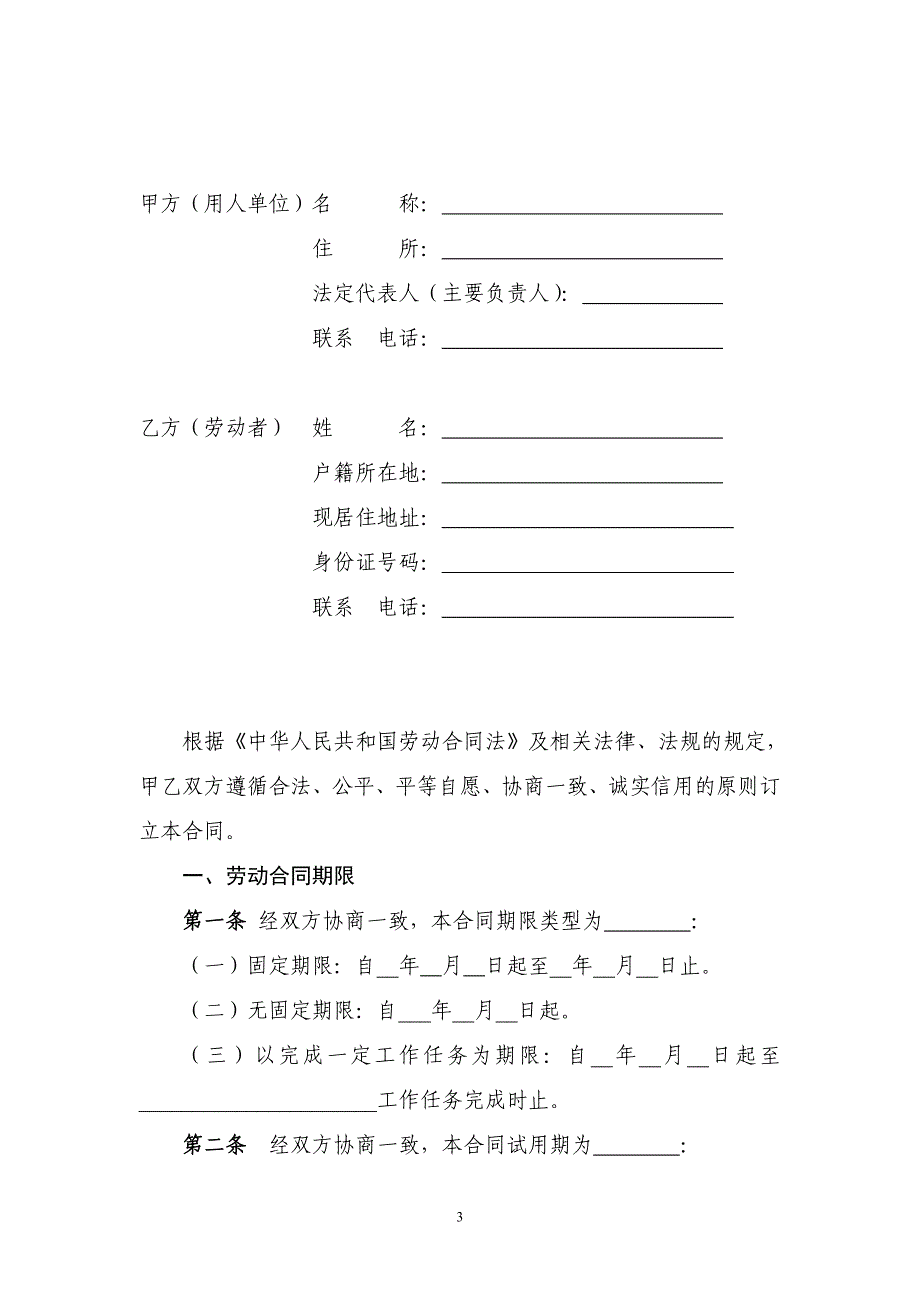 甲方（用人单位）名　　　称：_______________
住　　　所：_______________
法定代表人（主要负责人）：_______________
联系　电话：_______________
乙方（劳动者）　姓　　　名：_______________
户籍所在地：_______________
现居住地址：_______________
身份证号码：_______________
联系　电话：_______________
根据《中华人民共和国劳动合同法》及相关法律、法规的规定，
甲乙双方遵循合法、公平、平等自愿、协商一致、诚实信用的原则订
立本合同。
一、劳动合同期限
第一条 经双方协商一致，本合同期限类型为________：
（一）固定期限：自__年__月__日起至__年__月__日止。
（二）无固定期限：自___年__月__日起。
（三）以完成一定工作任务为期限：自__年__月__日起至
______________________工作任务完成时止。
第二条　经双方协商一致，本合同试用期为________：
3